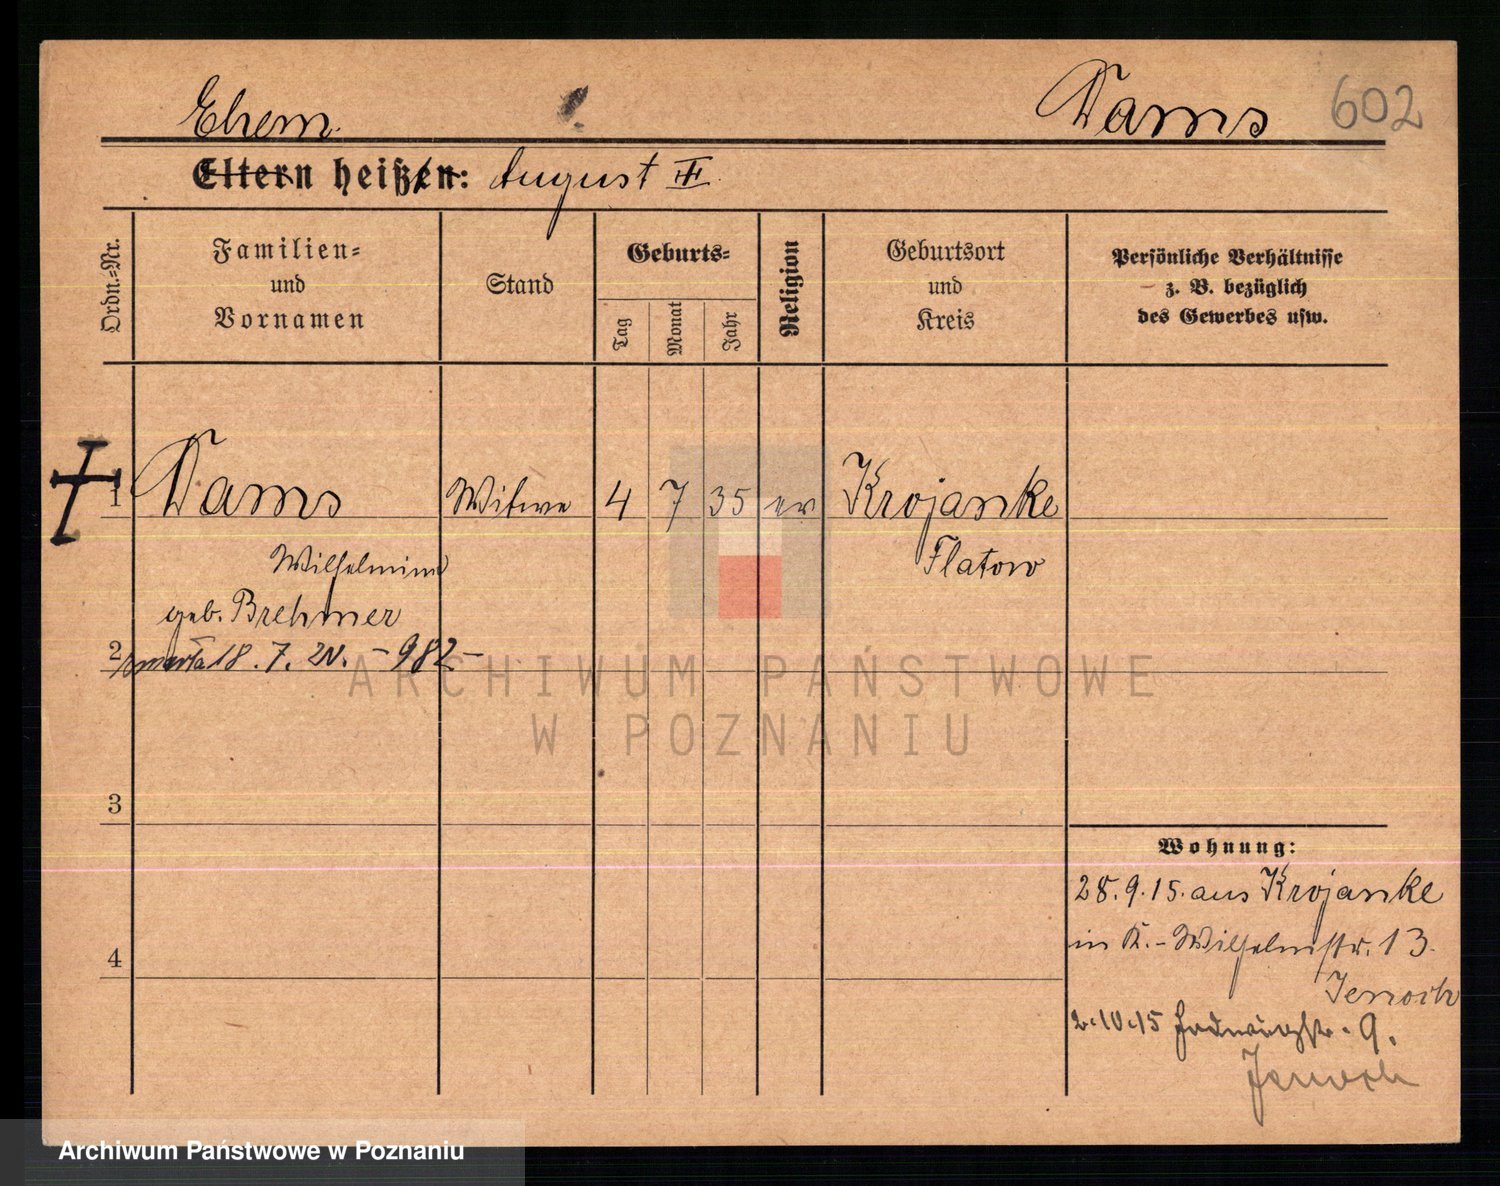 Ehem. Dams 602
Eltern heißen: August III.
Ordn.-Nr.
Familien-
und
Vornamen
Stand
Geburts-
Tag
Monat
Jahr
Religion
Geburtsort
und
Kreis
Persönliche Verhältnisse
z. B. bezüglich
des Gewerbes usw.
1 Dams Witwe 4 7 35 ev Krojanke
Wilhelmine Flatow
geb. Brehmer
2 zmarła 18. 7. 21. - 982 -
ARCHIWUM PAŃSTWOWE
W POZNANIU
3
Wohnung:
28.9.15. aus Krojanke
4
in K. - Wilhelmstr. 13.
2.10.15 9.
Archiwum Państwowe w Poznaniu